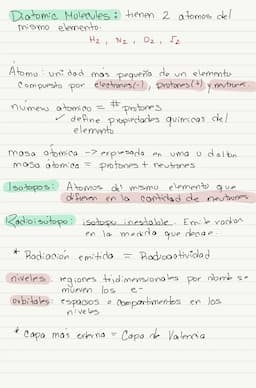 Diatomic Molecules: tienen 2 atomos del
mismo elemento.
H₂, N₂, O₂, I₂
Átomo: unidad más pequeña de un elemento
compuesto por electrones(-), protones(+) y neutrones.
número atomico = # protones
✓ define propiedades quimicas del
elemento
masa atómica -> expresada en uma o dalton
masa atomica = protones + neutrones
Isotopos: Atomos del mismo elemento que
difieren en la cantidad de neutrones
Radioisótopo: isotopo inestable. Emite radiacion
en la medida que decae.
* Radiacion emitida = Radioactividad
niveles: regiones tridimensionales por donde se
mueven los e-
orbitales: espacios o compartimentos en los
niveles
* Capa más externa = Capa de Valencia